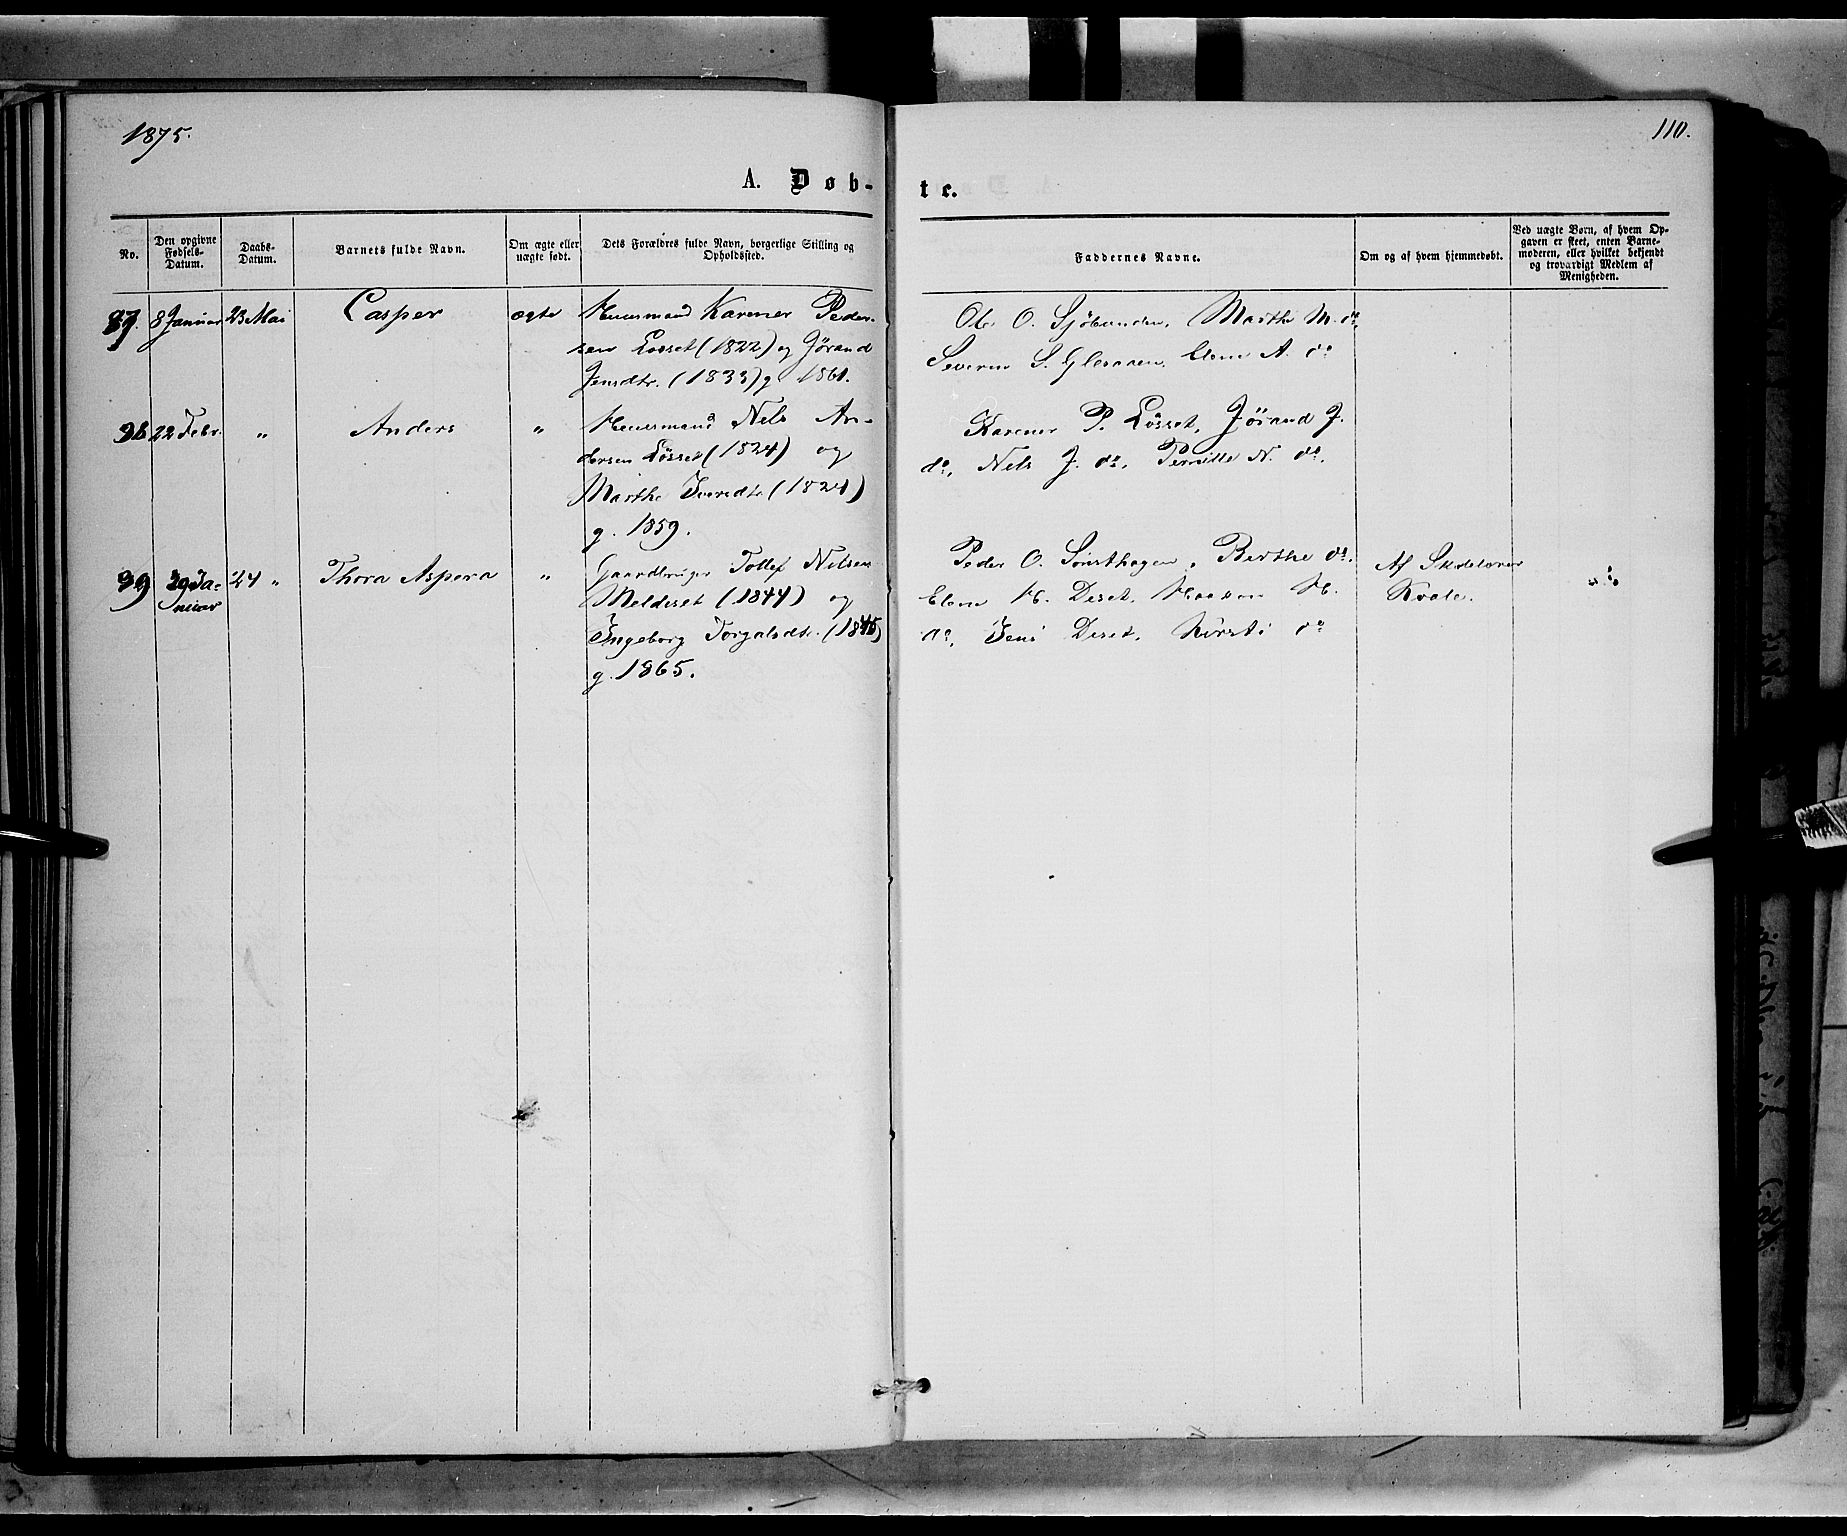 1875.
110.
A. Døb-
te.
No.
Den opgivne Fødsels-Datum.
Daabs-Datum.
Barnets fulde Navn.
Om ægte eller uægte født.
Dets Forældres fulde Navn, borgerlige Stilling og Opholdssted.
Faddernes Navne.
Om og af hvem hjemmedøbt.
Ved uægte Børn, af hvem Opgaven er skeet, enten Barnemoderen, eller hvilket bekjendt og troværdigt Medlem af Menigheden.
8 Januar 23 Mai Casper ægte Huusmand Karener Peder-
sen Løsset (1822) og Jørand
Jensdtr. (1833) g. 1861.
Ole O. Sjöbunden, Marthe M. do,
Severin S. Glesaaen, Elene A. do
22 Febr. " Anders " Huusmand Nels An-
dersen Løsset (1824) og
Marthe Iversdtr (1824)
g. 1859.
Karener P. Løsset, Jørand J.
do, Nels J. do, Pernille N. do.
29 Ja-
nuar
24 " Thora Aspera " Gaardbruger Tollef Nilsen
Meldeset (1844) og
Ingeborg Torgalsdtr. (1845)
g. 1865.
Peder O. Sønsthagen, Berthe do.
Elene H. Deset, Haakon H.
do, Jens Deset, Kirsti do
Af Skolelærer
Kvale.